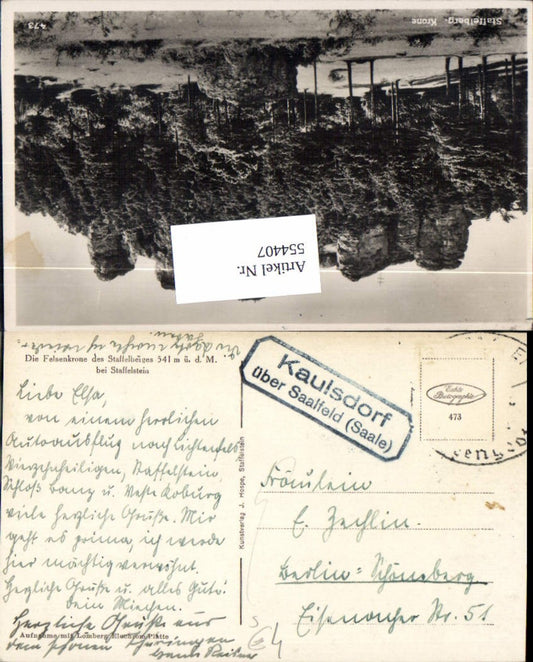 Staffelberg, Krone
473
Artikel Nr.
554407
Die Felsenkrone des Staffelberges 541 m ü. d. M.
bei Staffelstein
Liebe Elsa,
von einem herrlichen
Autoausflug nach Lichtenfels
Vierzehnheiligen, Staffelstein,
Schloß Banz u. Veste Koburg
viele herzliche Grüße. Mir
geht es prima, ich werde
hier mächtig verwöhnt.
Herzliche Grüße u. alles Gute
Dein Miechen.
Herzliche Grüße aus
dem schönen Thüringen
Aufnahme mit Lomberg Platte
Kunstverlag J. Hospe, Staffelstein
Kaulsdorf
über Saalfeld (Saale)
Echte
Photographie
473
Fräulein
E. Zechlin.
Berlin=Schöneberg
Eisenacher Str. 51